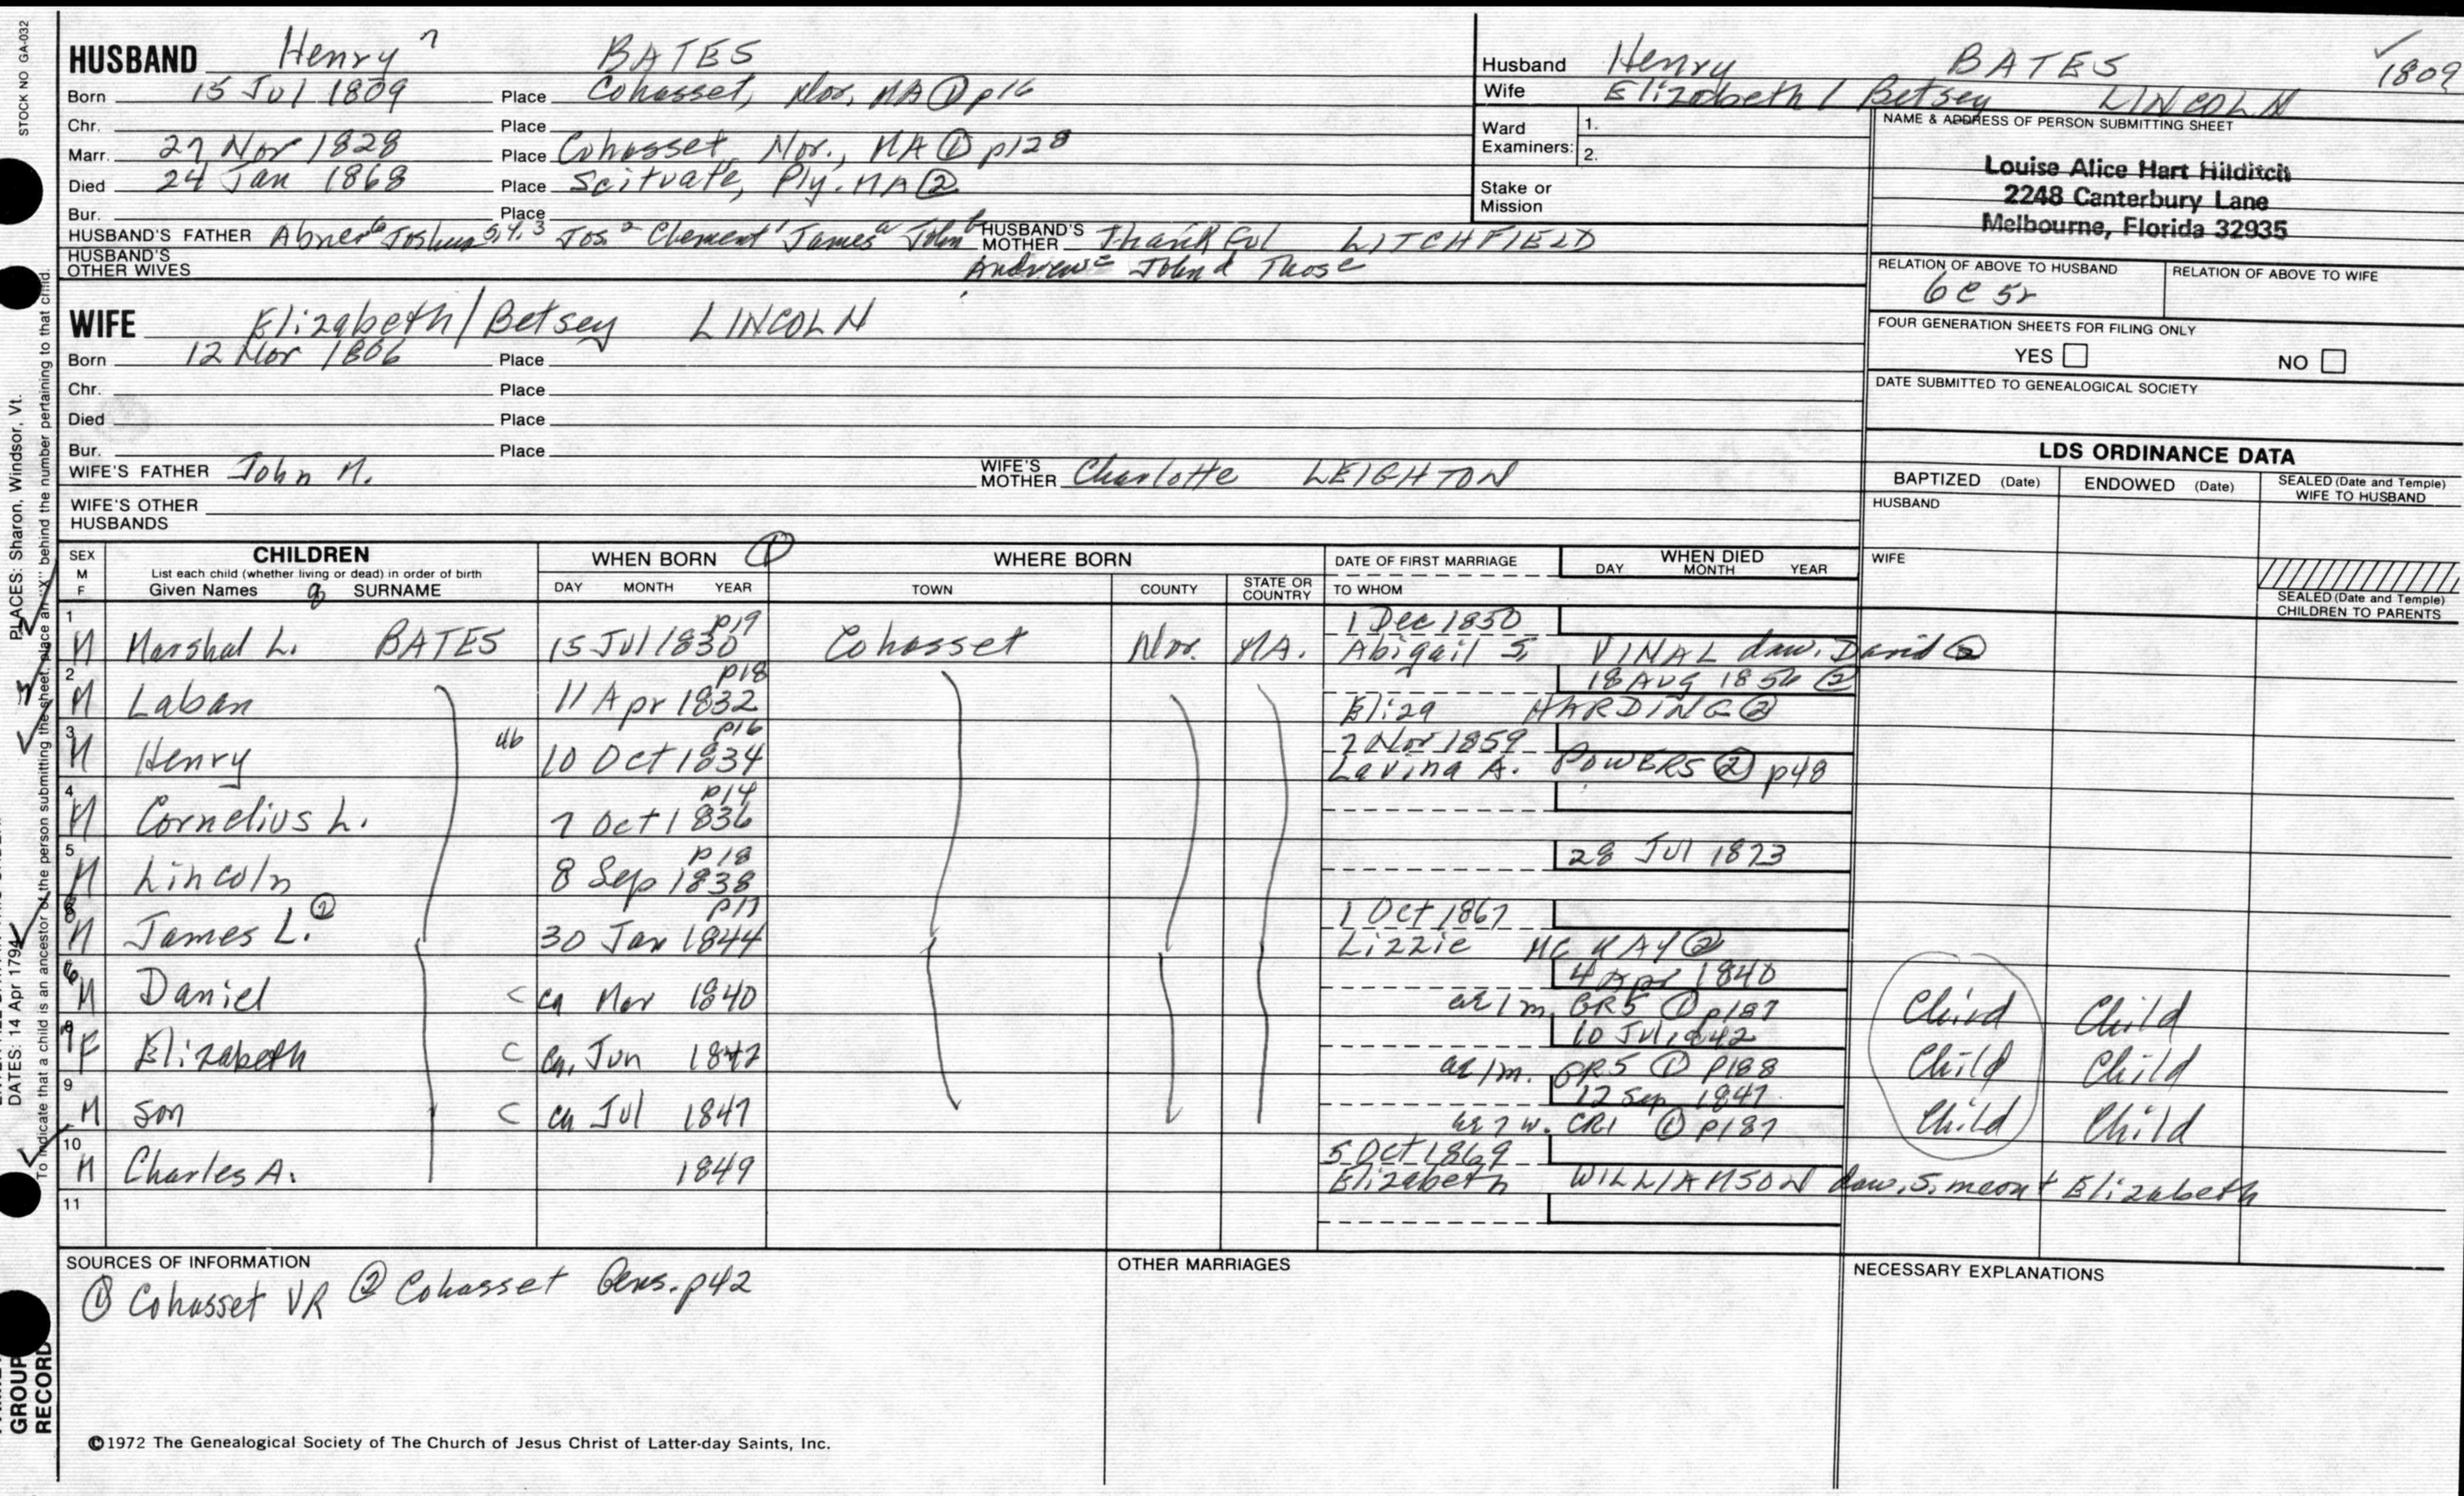 STOCK NO GA-032
HUSBAND Henry 7 BATES
Born 15 Jul 1809 Place Cohasset, Nor, MA ① p16
Chr. Place
Marr. 27 Nov 1828 Place Cohasset Nor., MA ① p128
Died 24 Jan 1868 Place Scituate, Ply. MA ②
Bur. Place
HUSBAND'S FATHER Abner 6 Joshua 5,4,3 Jos 2 Clement 1 James a John b HUSBAND'S MOTHER Thankful LITCHFIELD
HUSBAND'S OTHER WIVES Andrew c John d Thos e
Husband Henry BATES ✓ 1809
Wife Elizabeth / Betsey LINCOLN
Ward Examiners: 1.
2.
Stake or Mission
NAME & ADDRESS OF PERSON SUBMITTING SHEET
Louise Alice Hart Hilditch
2248 Canterbury Lane
Melbourne, Florida 32935
RELATION OF ABOVE TO HUSBAND RELATION OF ABOVE TO WIFE
6C 5r
FOUR GENERATION SHEETS FOR FILING ONLY
YES NO
DATE SUBMITTED TO GENEALOGICAL SOCIETY
WIFE Elizabeth/Betsey LINCOLN
Born 12 Nov 1806 Place
Chr. Place
Died Place
Bur. Place
WIFE'S FATHER John M. WIFE'S MOTHER Charlotte LEIGHTON
WIFE'S OTHER HUSBANDS
LDS ORDINANCE DATA
BAPTIZED (Date) ENDOWED (Date) SEALED (Date and Temple) WIFE TO HUSBAND
HUSBAND
WIFE
SEALED (Date and Temple) CHILDREN TO PARENTS
SEX M F CHILDREN List each child (whether living or dead) in order of birth Given Names 8 SURNAME
WHEN BORN ① DAY MONTH YEAR
WHERE BORN TOWN COUNTY STATE OR COUNTRY
DATE OF FIRST MARRIAGE TO WHOM
WHEN DIED DAY MONTH YEAR
1 p19 1 Dec 1850
M Marshal L. BATES 15 Jul 1830 Cohasset Nor. MA. Abigail S. VINAL daw. David ②
2 p18 18 AUG 1856 ②
M Laban 11 Apr 1832 Eliza HARDING ②
3 p16 7 Nov 1859
M Henry 10 Oct 1834 Lavina A. POWERS ② p48
4 p14
M Cornelius L. 7 Oct 1836
5 p18 28 Jul 1873
M Lincoln 8 Sep 1838
p17 1 Oct 1867
M James L. ② 30 Jan 1844 Lizzie MC KAY ②
6 4 Apr 1840
M Daniel C ca Mar 1840 ae 1 m. GR5 ① p187 Child Child
10 Jul 1842
F Elizabeth C ca. Jun 1842 ae 1m. GR5 ① p188 Child Child
9 12 Sep 1847
M son C ca Jul 1847 ae 7 w. CR1 ① p187 Child Child
10 5 Oct 1869
M Charles A. 1849 Elizabeth WILLIAMSON daw. Simeon + Elizabeth
11
SOURCES OF INFORMATION
① Cohasset VR ② Cohasset Gens. p42
OTHER MARRIAGES
NECESSARY EXPLANATIONS
©1972 The Genealogical Society of The Church of Jesus Christ of Latter-day Saints, Inc.
PLACES: Sharon, Windsor, Vt.
DATES: 14 Apr 1794
To indicate that a child is an ancestor of the person submitting the sheet, place an "X" behind the number pertaining to that child.
GROUP
RECORD